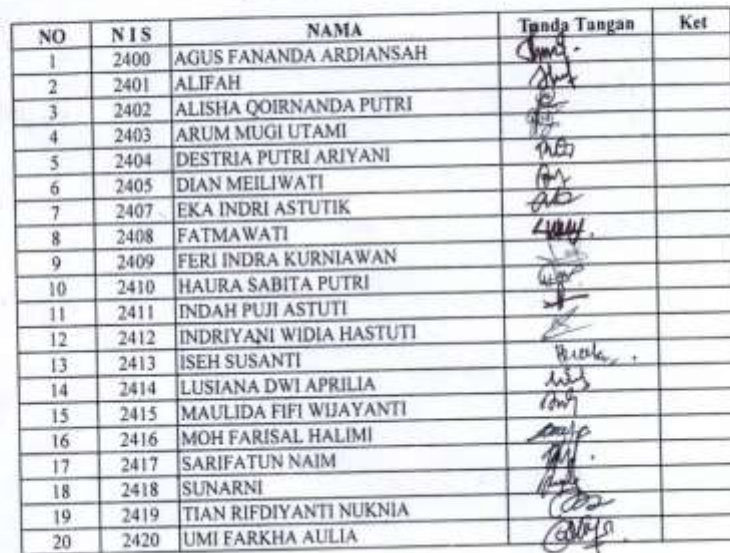 NO N I S NAMA Tanda Tangan Ket
1 2400 AGUS FANANDA ARDIANSAH
2 2401 ALIFAH
3 2402 ALISHA QOIRNANDA PUTRI
4 2403 ARUM MUGI UTAMI
5 2404 DESTRIA PUTRI ARIYANI
6 2405 DIAN MEILIWATI
7 2407 EKA INDRI ASTUTIK
8 2408 FATMAWATI
9 2409 FERI INDRA KURNIAWAN
10 2410 HAURA SABITA PUTRI
11 2411 INDAH PUJI ASTUTI
12 2412 INDRIYANI WIDIA HASTUTI
13 2413 ISEH SUSANTI
14 2414 LUSIANA DWI APRILIA
15 2415 MAULIDA FIFI WIJAYANTI
16 2416 MOH FARISAL HALIMI
17 2417 SARIFATUN NAIM
18 2418 SUNARNI
19 2419 TIAN RIFDIYANTI NUKNIA
20 2420 UMI FARKHA AULIA